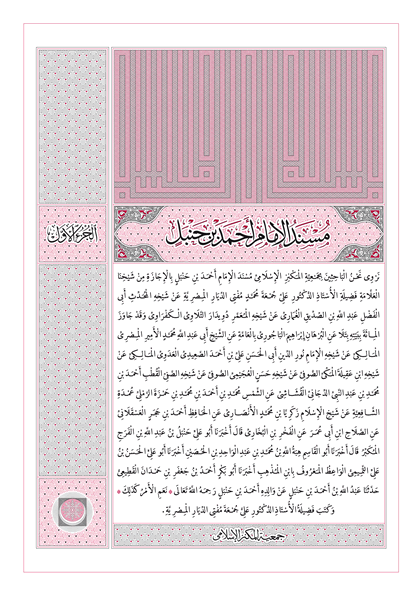 مُسْنَدُ الإِمَامِ أَحْمَدَ بْنِ حَنْبَلٍ
الجُزْءُ الأَوَّلُ
نَرْوِى نَحْنُ البَاحِثِينَ بِجَمْعِيَّةِ المَكْنِزِ الإِسْلَامِىِّ مُسْنَدَ الإِمَامِ أَحْمَدَ بْنِ حَنْبَلٍ بِالإِجَازَةِ مِنْ شَيْخِنَا
العَلَّامَةِ فَضِيلَةِ الأُسْتَاذِ الدُّكْتُورِ عَلِىّ جُمُعَةَ مُحَمَّدٍ مُفْتِى الدِّيَارِ المِصْرِيَّةِ عَنْ شَيْخِهِ المُحَدِّثِ أَبِى
الفَضْلِ عَبْدِ اللَّهِ بْنِ الصِّدِّيقِ الغُمَارِىِّ عَنْ شَيْخِهِ المُعَمَّرِ دُوِيدَارَ التَّلَاوِىِّ الكَفْرَاوِىِّ وَقَدْ جَاوَزَ
المِائَةَ بِيَقِينٍ عَنِ البُرْهَانِ إِبْرَاهِيمَ البَاجُورِىِّ بِالعَامَّةِ عَنِ الشَّيْخِ أَبِى عَبْدِ اللَّهِ مُحَمَّدٍ الأَمِيرِ المِصْرِىِّ
المَالِكِىِّ عَنْ شَيْخِهِ الإِمَامِ نُورِ الدِّينِ أَبِى الحَسَنِ عَلِىِّ بْنِ أَحْمَدَ الصَّعِيدِىِّ العَدَوِىِّ المَالِكِىِّ عَنْ
شَيْخِهِ ابْنِ عَقِيلَةَ المَكِّىِّ الصُّوفِىِّ عَنْ شَيْخِهِ حَسَنٍ العُجَيْمِىِّ الصُّوفِىِّ عَنْ شَيْخِهِ الصَّفِىِّ القُطْبِ أَحْمَدَ بْنِ
مُحَمَّدِ بْنِ عَبْدِ النَّبِىِّ الدَّجَانِىِّ القُشَاشِىِّ عَنِ الشَّمْسِ مُحَمَّدِ بْنِ أَحْمَدَ بْنِ مُحَمَّدِ بْنِ حَمْزَةَ الرَّمْلِىِّ عُمْدَةِ
الشَّافِعِيَّةِ عَنْ شَيْخِ الإِسْلَامِ زَكَرِيَّا بْنِ مُحَمَّدٍ الأَنْصَارِىِّ عَنِ الحَافِظِ أَحْمَدَ بْنِ حَجَرٍ العَسْقَلَانِىِّ
عَنِ الصَّلَاحِ ابْنِ أَبِى عُمَرَ عَنِ الفَخْرِ بْنِ البُخَارِىِّ قَالَ أَخْبَرَنَا أَبُو عَلِىٍّ حَنْبَلُ بْنُ عَبْدِ اللَّهِ بْنِ الفَرَجِ
المُكَبِّرُ قَالَ أَخْبَرَنَا أَبُو القَاسِمِ هِبَةُ اللَّهِ بْنُ مُحَمَّدِ بْنِ عَبْدِ الوَاحِدِ بْنِ الحُصَيْنِ أَخْبَرَنَا أَبُو عَلِىٍّ الحَسَنُ بْنُ
عَلِىٍّ التَّمِيمِىُّ الوَاعِظُ المَعْرُوفُ بِابْنِ المُذْهِبِ أَخْبَرَنَا أَبُو بَكْرٍ أَحْمَدُ بْنُ جَعْفَرِ بْنِ حَمْدَانَ القَطِيعِىُّ
حَدَّثَنَا عَبْدُ اللَّهِ بْنُ أَحْمَدَ بْنِ حَنْبَلٍ عَنْ وَالِدِهِ أَحْمَدَ بْنِ حَنْبَلٍ رَحِمَهُ اللَّهُ تَعَالَى * نَعَمِ الأَمْرُ كَذَلِكَ *
وَكَتَبَ فَضِيلَةُ الأُسْتَاذِ الدُّكْتُورِ عَلِىّ جُمُعَة مُفْتِى الدِّيَارِ المِصْرِيَّةِ.
جمعية المكنز الإسلامى